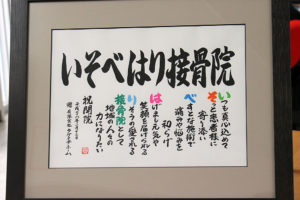 いそべはり接骨院
いつも真心込めて
そっと患者様に
寄り添い
べすとな施術で
痛みや悩みを
和らげ
はげまし元気や
笑顔を届けられる
りそうの愛される
接骨院として
地域の人々の
力になりたい
祝開院